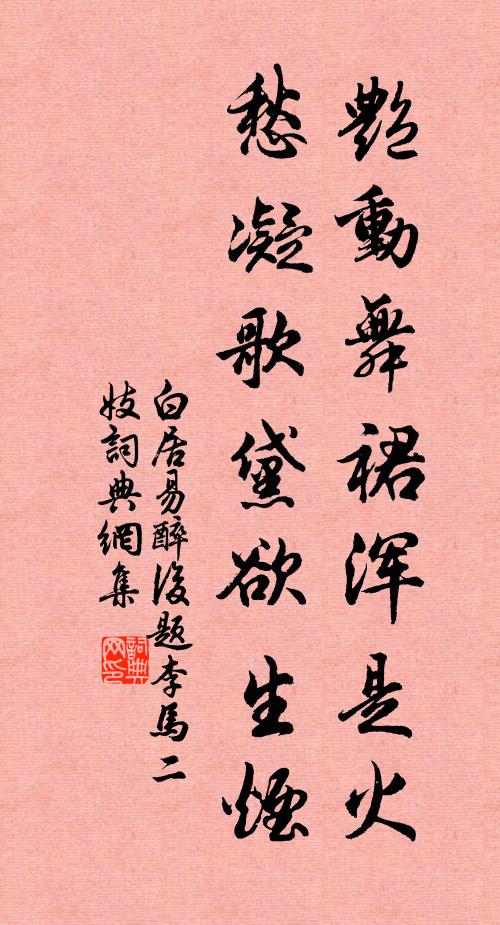 艷動舞裙浑是火
愁凝歌黛欲生煙
白居易醉後題李馬二
妓詞典網集
詞典
网印